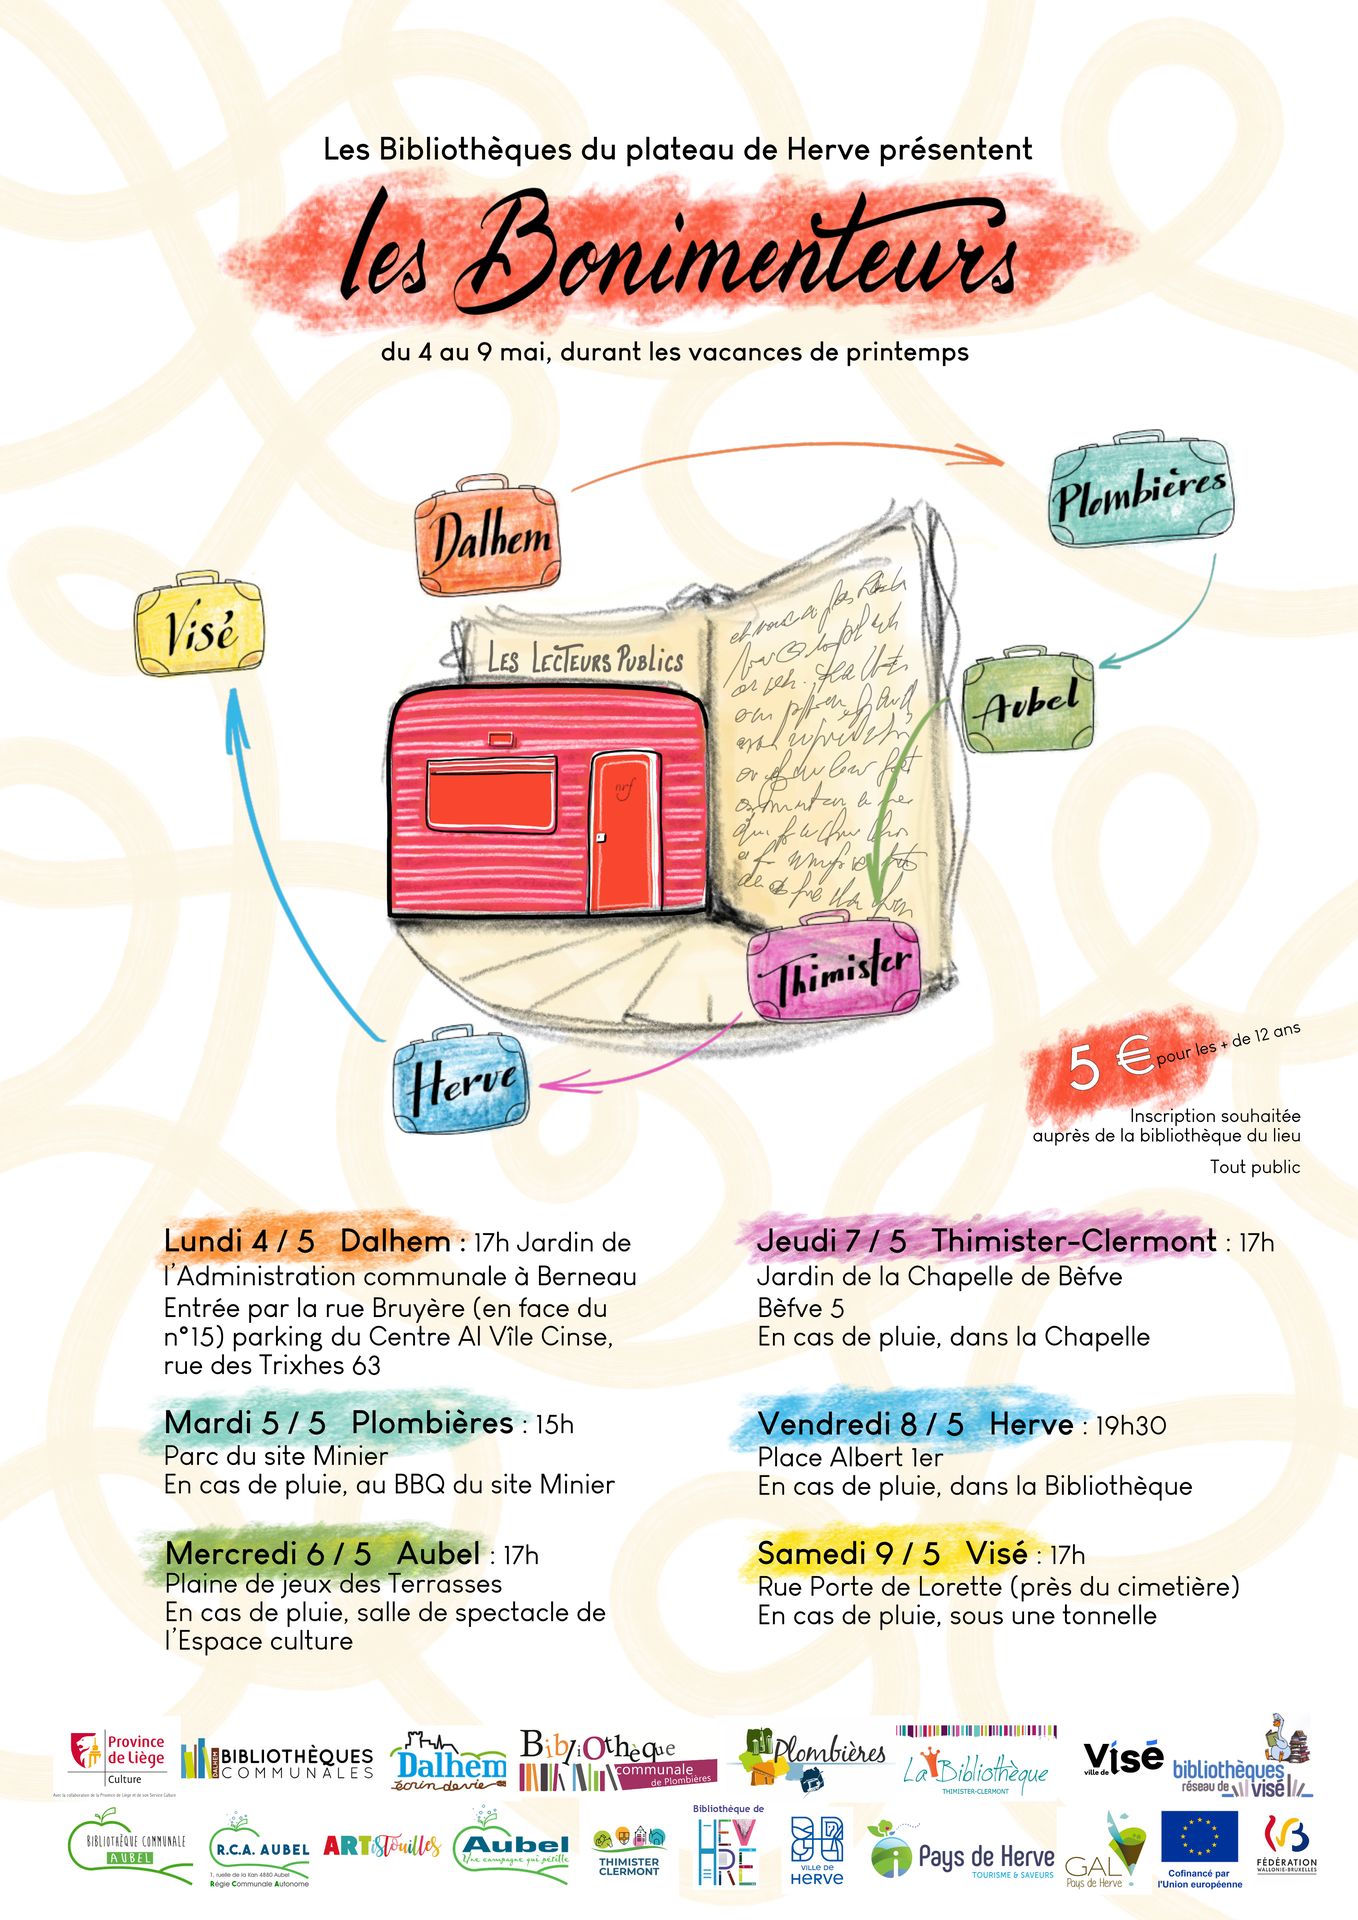 Les Bibliothèques du plateau de Herve présentent
les Bonimenteurs
du 4 au 9 mai, durant les vacances de printemps
Dalhem
Plombières
Visé
Aubel
LES LECTEURS PUBLICS
nrf
Thimister
Herve
5 € pour les + de 12 ans
Inscription souhaitée
auprès de la bibliothèque du lieu
Tout public
Lundi 4 / 5 Dalhem : 17h Jardin de
l'Administration communale à Berneau
Entrée par la rue Bruyère (en face du
n°15) parking du Centre Al Vîle Cinse,
rue des Trixhes 63
Mardi 5 / 5 Plombières : 15h
Parc du site Minier
En cas de pluie, au BBQ du site Minier
Mercredi 6 / 5 Aubel : 17h
Plaine de jeux des Terrasses
En cas de pluie, salle de spectacle de
l'Espace culture
Jeudi 7 / 5 Thimister-Clermont : 17h
Jardin de la Chapelle de Bèfve
Bèfve 5
En cas de pluie, dans la Chapelle
Vendredi 8 / 5 Herve : 19h30
Place Albert 1er
En cas de pluie, dans la Bibliothèque
Samedi 9 / 5 Visé : 17h
Rue Porte de Lorette (près du cimetière)
En cas de pluie, sous une tonnelle
Province
de Liège
Culture
Avec la collaboration de la Province de Liège et de son Service Culture
DALHEM
BIBLIOTHÈQUES
COMMUNALES
Dalhem
écrin de vie
Bibliothèque
communale
de Plombières
Plombières
La Bibliothèque
THIMISTER-CLERMONT
ville de Visé
bibliothèques
réseau de visé
BIBLIOTHÈQUE COMMUNALE
AUBEL
R.C.A. AUBEL
1, ruelle de la Kan 4880 Aubel
Régie Communale Autonome
ARTistouilles
Aubel
Une campagne qui pétille
THIMISTER
CLERMONT
Bibliothèque de
HERVE
VILLE DE
HERVE
Pays de Herve
TOURISME & SAVEURS
GAL
Pays de Herve
Cofinancé par
l'Union européenne
FÉDÉRATION
WALLONIE-BRUXELLES